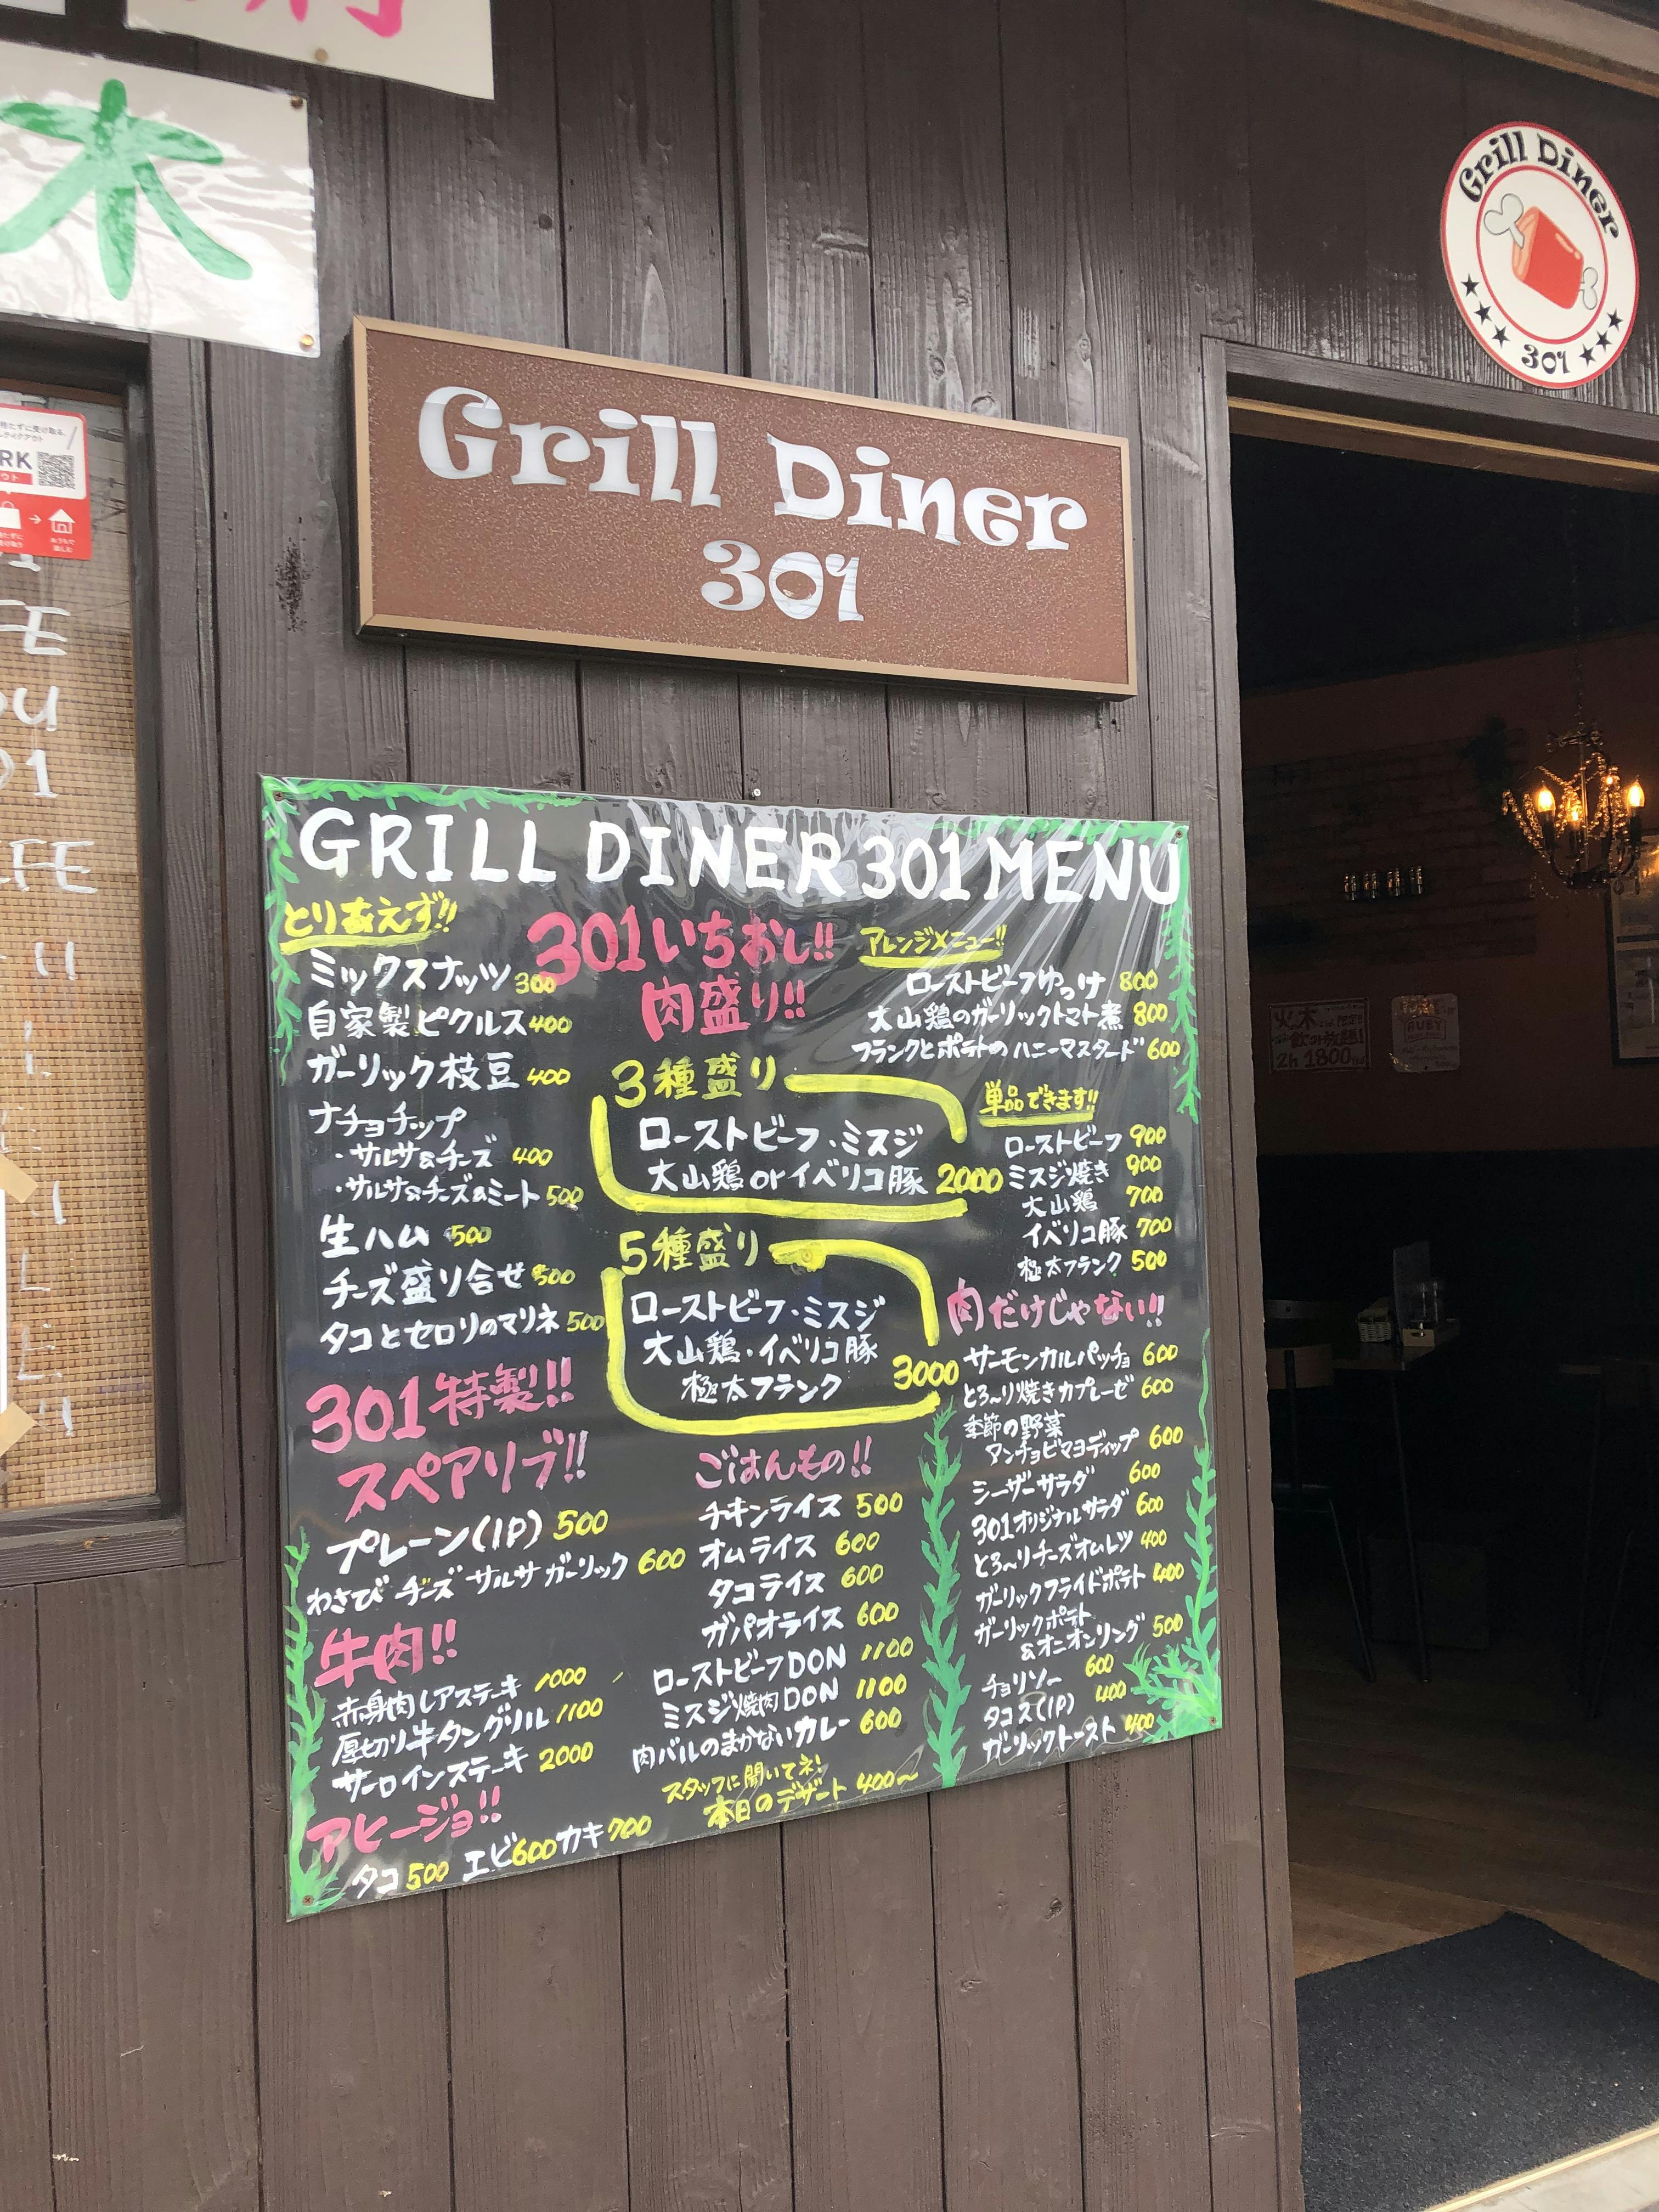 木
Grill Diner
301
Grill Diner
301
RK
GRILL DINER 301 MENU
とりあえず!!
ミックスナッツ 300
自家製ピクルス 400
ガーリック枝豆 400
ナチョチップ
・サルサ&チーズ 400
・サルサ&チーズ&ミート 500
生ハム 500
チーズ盛り合せ 500
タコとセロリのマリネ 500
301特製!!
スペアリブ!!
プレーン(1P) 500
わさび チーズ サルサ ガーリック 600
牛肉!!
赤身肉レアステーキ 1000
厚切り牛タングリル 1100
サーロインステーキ 2000
アヒージョ!!
タコ 500 エビ 600 カキ 700
301いちおし!!
肉盛り!!
3種盛り
ローストビーフ・ミスジ
大山鶏 or イベリコ豚 2000
5種盛り
ローストビーフ・ミスジ
大山鶏・イベリコ豚
極太フランク 3000
ごはんもの!!
チキンライス 500
オムライス 600
タコライス 600
ガパオライス 600
ローストビーフDON 1100
ミスジ焼肉DON 1100
肉バルのまかないカレー 600
スタッフに聞いてネ!
本日のデザート 400〜
アレンジメニュー!!
ローストビーフゆっけ 800
大山鶏のガーリックトマト煮 800
フランクとポテトのハニーマスタード 600
単品できます!!
ローストビーフ 900
ミスジ焼き 900
大山鶏 700
イベリコ豚 700
極太フランク 500
肉だけじゃない!!
サーモンカルパッチョ 600
とろ〜り焼きカプレーゼ 600
季節の野菜
アンチョビマヨディップ 600
シーザーサラダ 600
301オリジナルサラダ 600
とろ〜りチーズオムレツ 400
ガーリックフライドポテト 400
ガーリックポテト
&オニオンリング 500
チョリソー 600
タコス(1P) 400
ガーリックトースト 400
2h 1800
RUBY